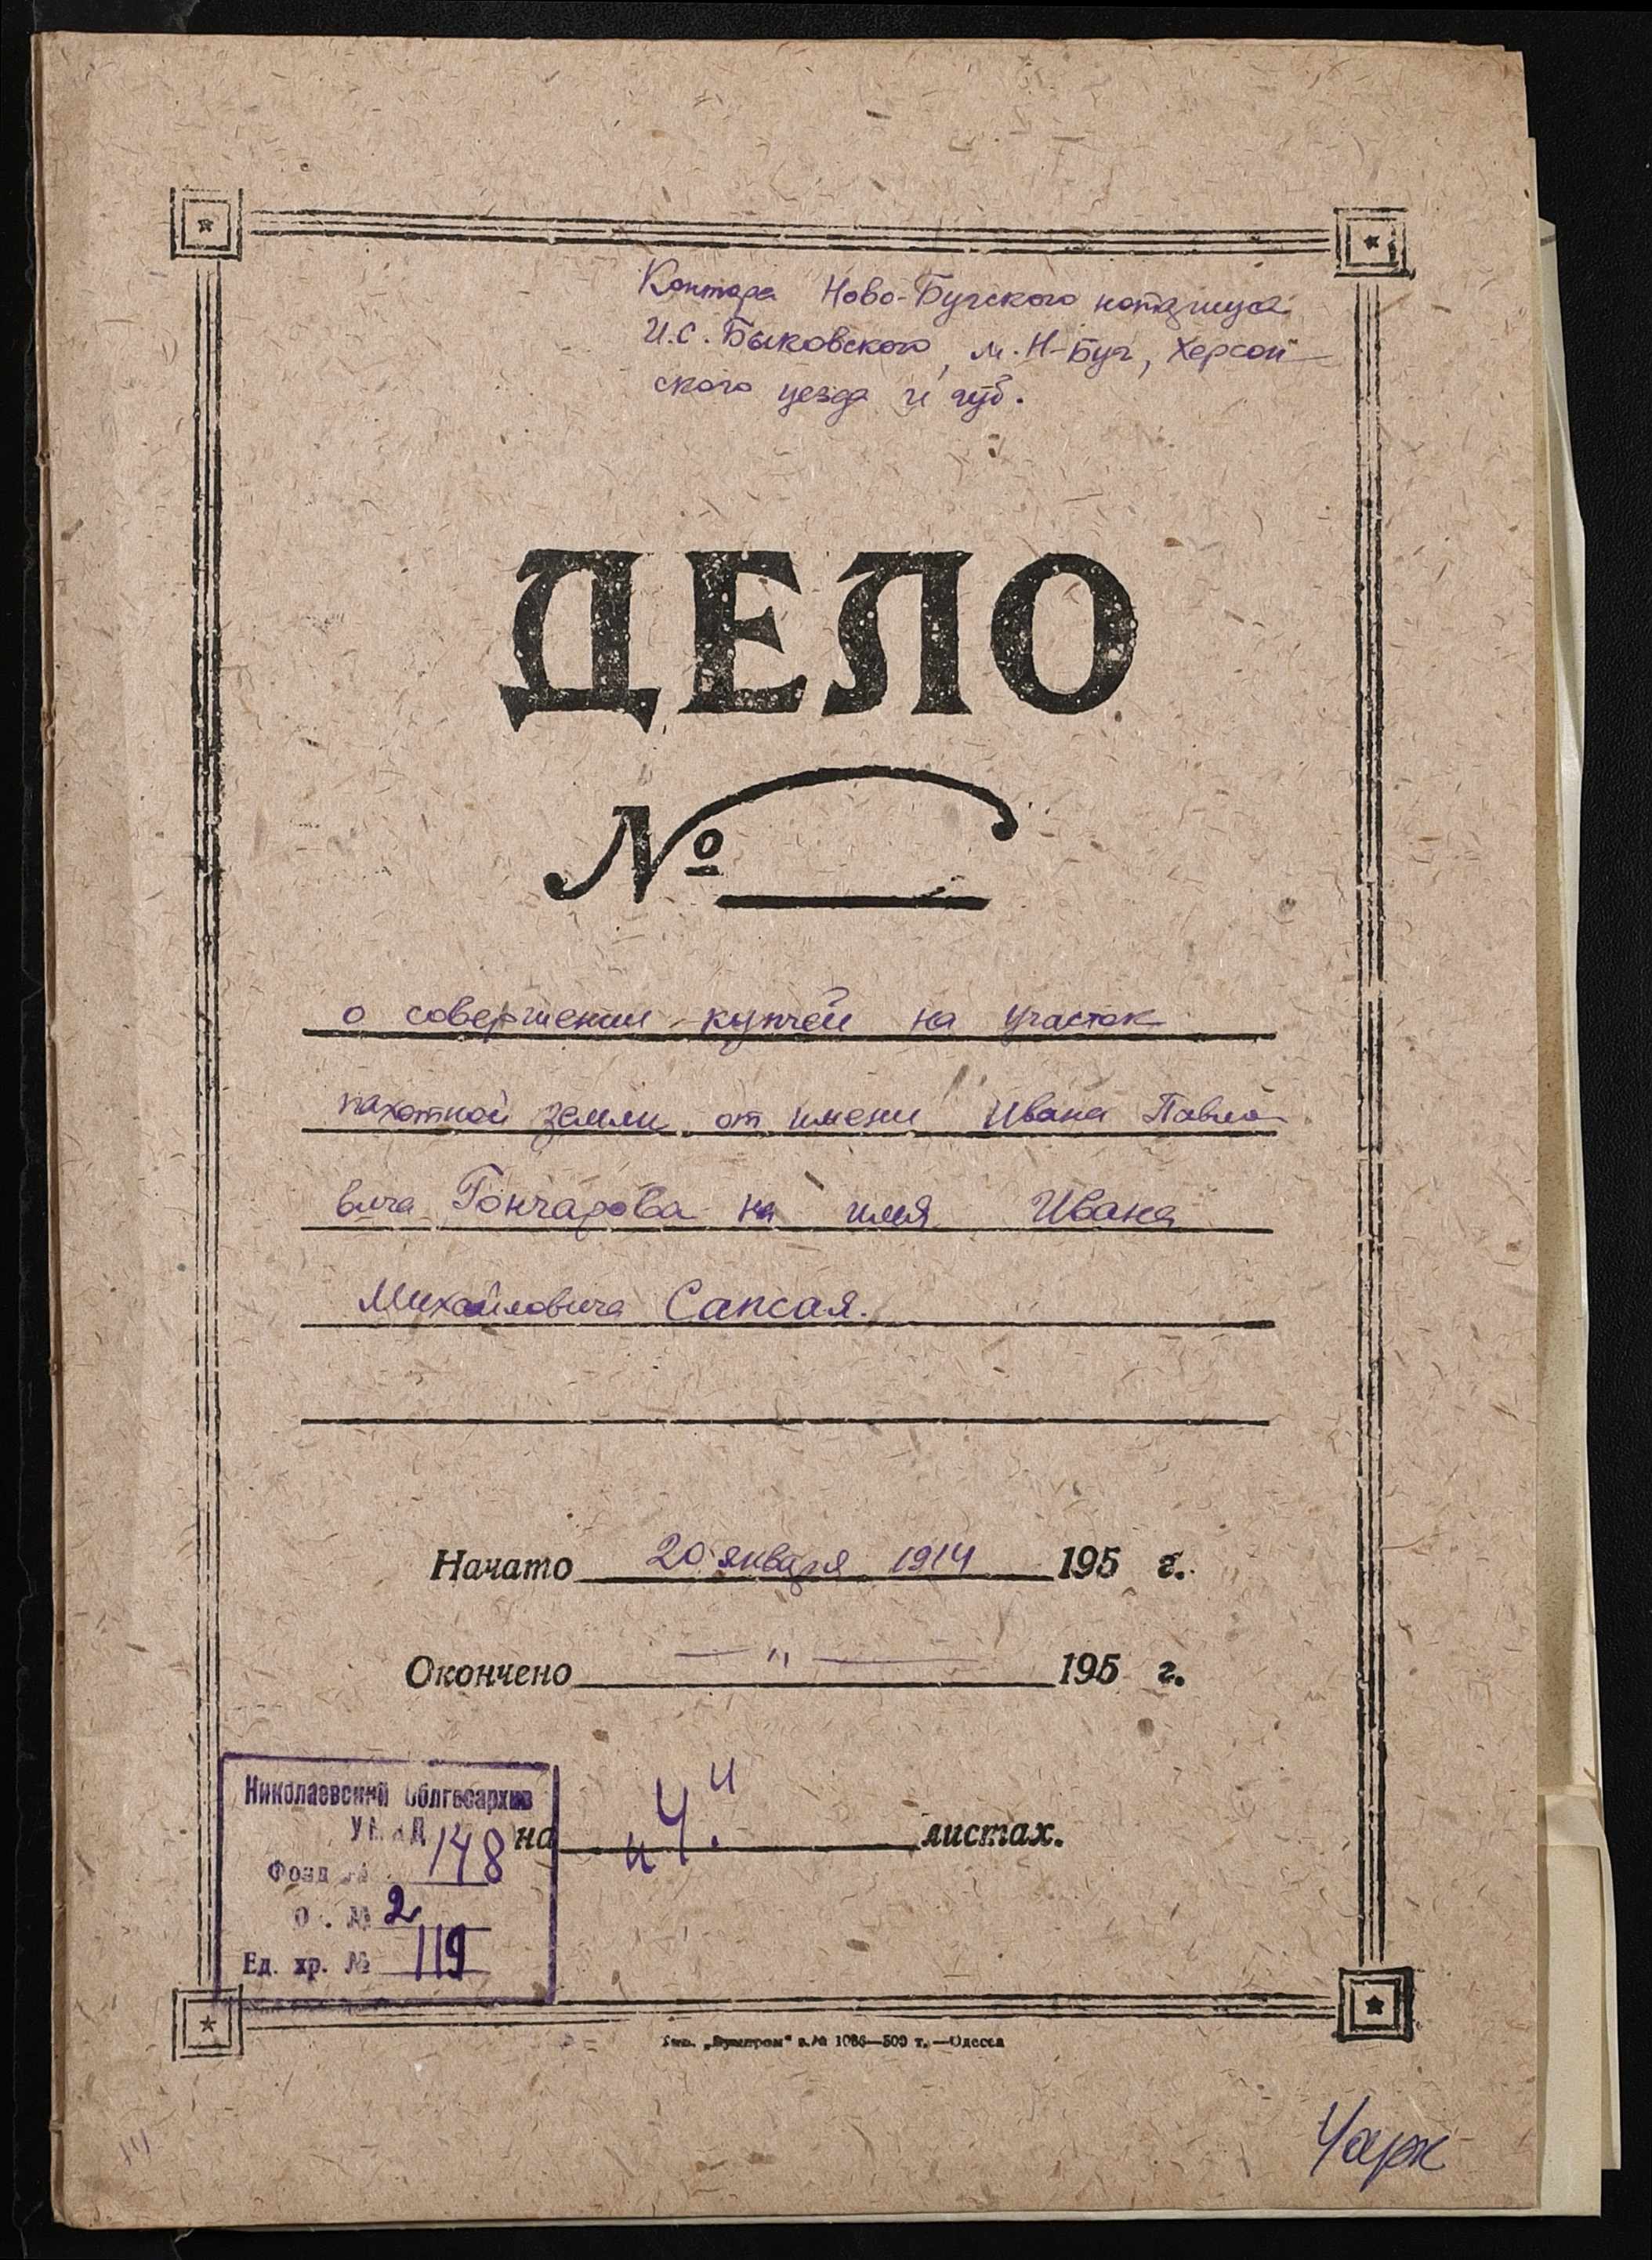 Контора Ново-Бугского нотариуса
И.С. Быковского, м. Н-Буг, Херсон-
ского уезда и губ.
ДЕЛО
№
о совершении купчей на участок
пахотной земли от имени Ивана Павло-
вича Гончарова на имя Ивана
Михайловича Сапсая.
Начато 20 января 1914 195 г.
Окончено — " — 195 г.
Николаевский Облгосархив
УМВД
Фонд № 148
О . № 2
Ед. хр. № 119
на "4" листах.
№ 1086—500 т. —Одесса